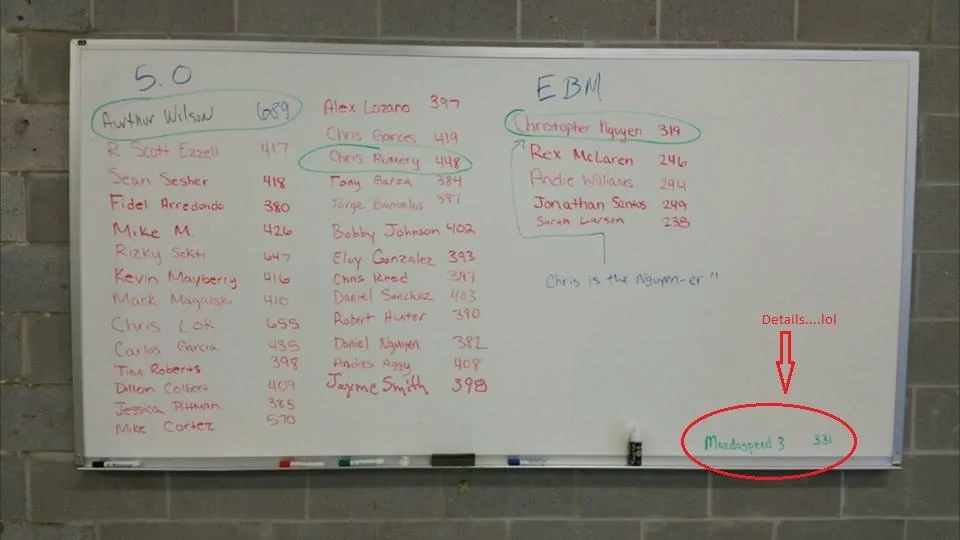 5.0
Aurthur Wilson 689
R Scott Ezzell 417
Sean Sesher 418
Fidel Arredondo 380
Mike M. 426
Rizky Sekti 647
Kevin Mayberry 416
Mark Magalski 410
Chris Lok 655
Carlos Garcia 435
Tim Roberts 398
Dillon Colbert 409
Jessica Pittman 385
Mike Cortez 570
Alex Lozano 397
Chris Garces 419
Chris Rumery 448
Tony Garza 384
Jorge Banuelos 397
Bobby Johnson 402
Eloy Gonzalez 393
Chris Reed 397
Daniel Sanchez 403
Robert Hunter 390
Daniel Nguyen 382
Andres Aggy 408
Jayme Smith 398
EBM
Christopher Nguyen 319
Rex McLaren 246
Andie Williams 294
Jonathan Santos 249
Sarah Larson 238
Chris is the Nguyen-er"
Details....lol
Mazdaspeed 3 331